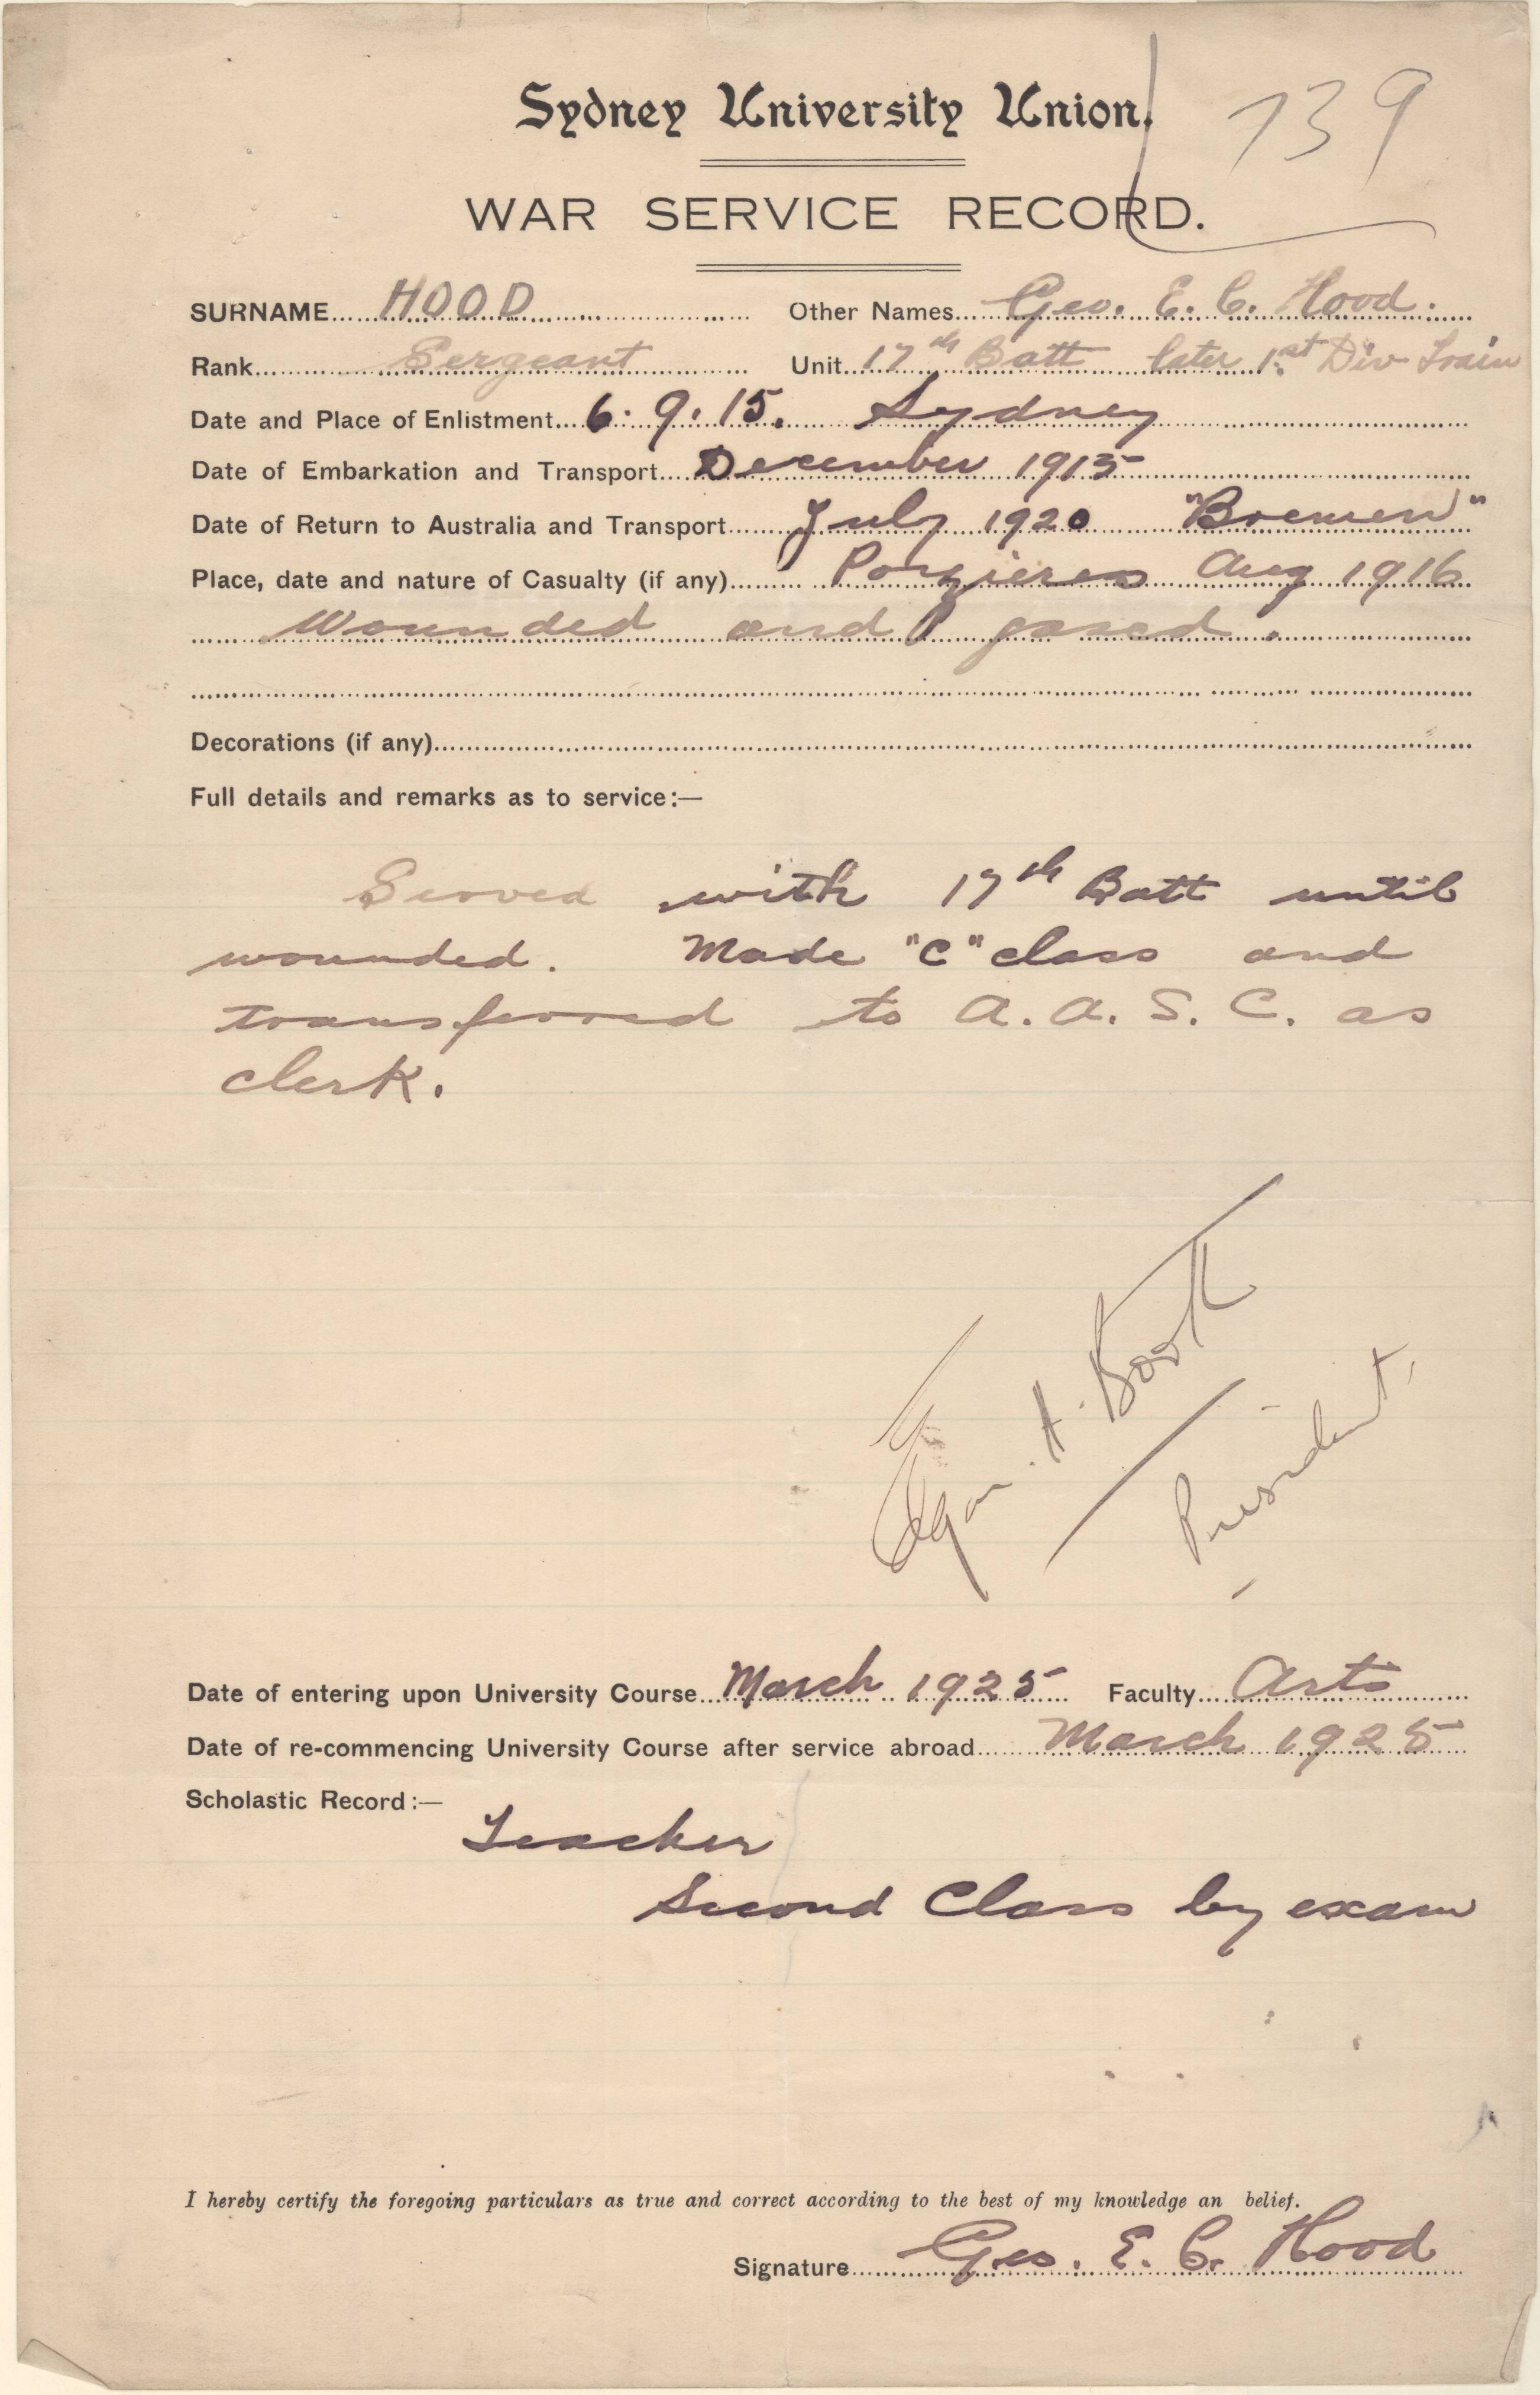 Sydney University Union.
739
WAR SERVICE RECORD.
SURNAME HOOD Other Names Geo. E. C. Hood.
Rank Sergeant Unit 17th Batt later 1st Div Train
Date and Place of Enlistment 6. 9. 15. Sydney
Date of Embarkation and Transport December 1915
Date of Return to Australia and Transport July 1920 "Bremen"
Place, date and nature of Casualty (if any) Pozieres Aug 1916
Wounded and gased.
Decorations (if any)
Full details and remarks as to service:—
Served with 17th Batt until
wounded. Made "C" class and
transferred to A. A. S. C. as
clerk.
Edgar. H. Booth
President.
Date of entering upon University Course March 1925 Faculty Arts
Date of re-commencing University Course after service abroad March 1925
Scholastic Record:—
Teacher
Second Class by exam
I hereby certify the foregoing particulars as true and correct according to the best of my knowledge an belief.
Signature Geo. E. C. Hood